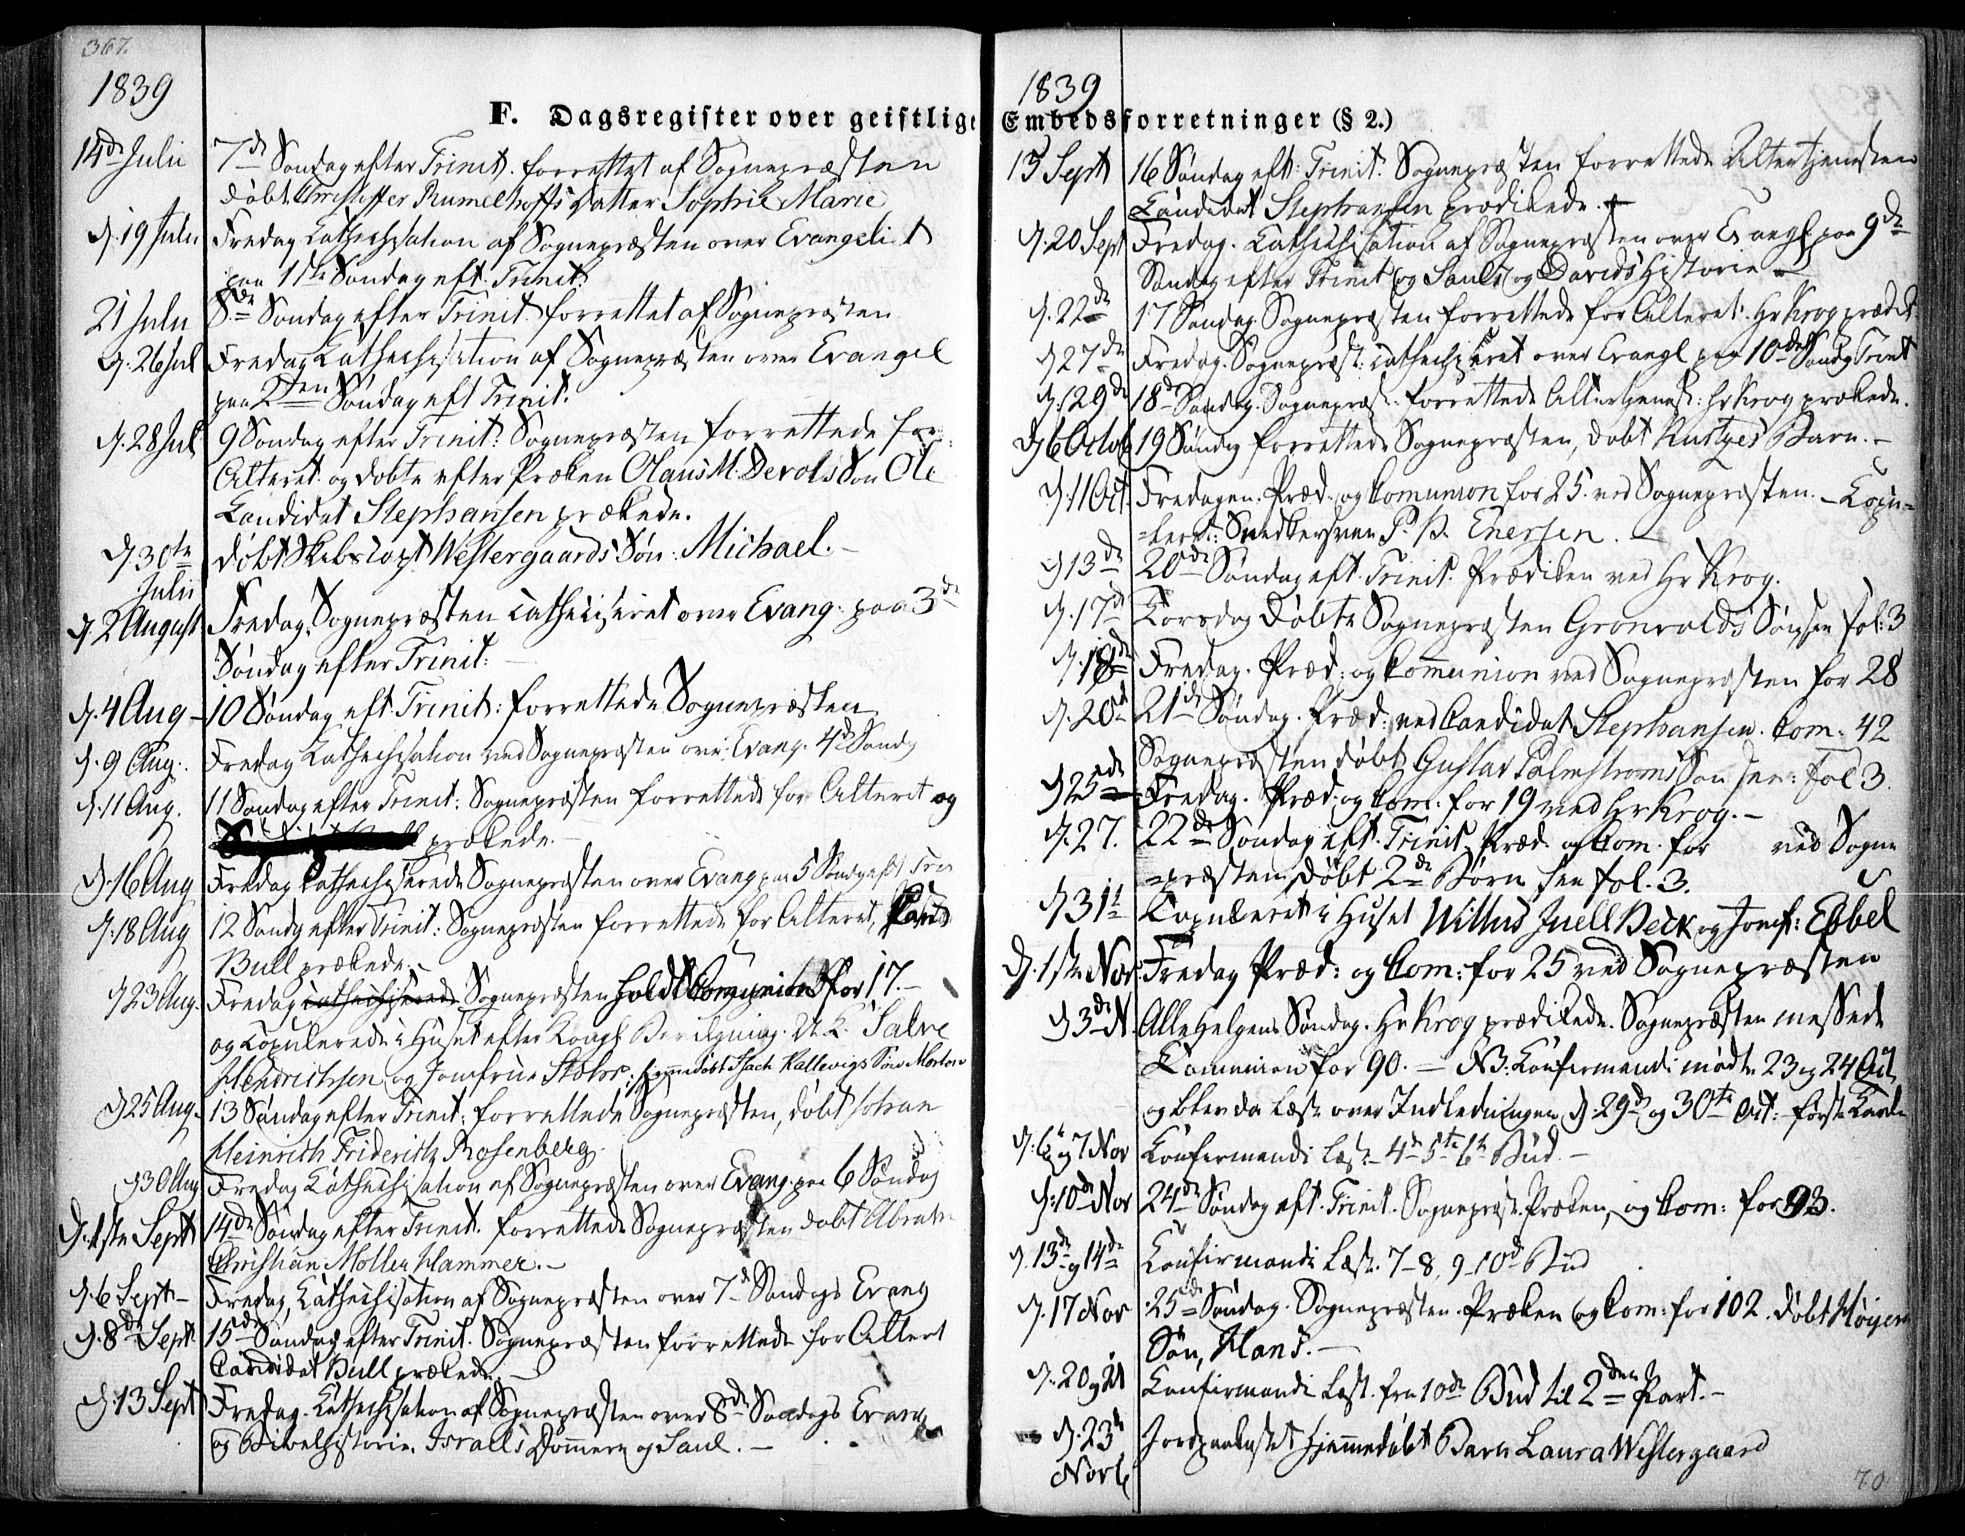 367.
1839
F. Dagsregister over geistlige
14de Julii 7de Søndag efter Trinit. forrettet af Sognepræsten
døbt Christoffer Rumelhoffs Datter Sophie Marie
d. 19 Julii Fredag Cathechisation af Sognepræsten over Evangeliet
paa 1ste Søndag eft. Trinit:
21 Julii 8de Søndag efter Trinit. forrettet af Sognepræsten
d. 26 Jul Fredag Cathechisation af Sognepræsten over Evangel
paa 2den Søndag eft Trinit.
d. 28 Jul 9 Søndag efter Trinit: Sognepræsten forrettede for
Alteret og døbte efter Præken Olaus M. Devolds Søn Ole
Candidat Stephansen prækede.
d. 30te Julii døbt Skibscapt Westergaards Søn: Michael. –
d. 2 August Fredag, Sognepræsten catheciseret over Evang. paa 3de
Søndag efter Trinit: –
d. 4 Aug – 10 Søndag eft. Trinit: forrettede Sognepræsten
d. 9 Aug. Fredag Cathechisation ved Sognepræsten over Evang. 4de Søndg
d. 11 Aug. 11 Søndag efter Trinit: Sognepræsten forrettede for Alteret og
prækede. –
d. 16 Aug Fredag Cathechiserede Sognepræsten over Evang paa 5 Søndg eft Trin
d. 18 Aug 12 Søndg efter Trinit: Sognepræsten forrettede for Alteret, Cand
Bull prækede. –
d 23 Aug. Fredag cathechiserede Sognepræsten holdt Comunion for 17. –
og Copulerede i Huset efter Kongl Bevilgning. U. K. Salve
Hendrichsen og Jomfrue Stohr; hjemmedøbt Isach Kallevigs Søn Morten
d 25 Aug. 13 Søndag efter Trinit: forrettede Sognepræsten, døbt Johan
Heinrich Friderich Rosenberg.
d 30 Aug Fredag Cathechisation af Sognepræsten over Evang. paa 6 Søndag
d. 1ste Sept 14de Søndag efter Trinit. forrettede Sognepræsten døbt Abrah
Christian Møller Hammer. –
d. 6 Sept – Fredag, Cathechisation af Sognepræsten over 7de Søndags Evang
d. 8de Sept 15de Søndag efter Trinit. Sognepræsten forrettede for Altert
Candidat Bull prækede. –
d. 13 Sept Fredag. Cathechisation af Sognepræsten over 8de Søndags Evang
og Bibelhistorie, Israels Dommere og Saul. –
1839
Embedsforretninger (§ 2.)
15 Sept 16 Søndag eft: Trinit: Sognepræsten forrettede Altertjenesten
Candidat Stephansen prædikede.
d. 20 Sept Fredag. Cathechisation af Sognepræsten over Evangl. paa 9de
Søndag efter Trinit og Sauls og Davids Historie –
d. 22de 17 Søndag Sognepræsten forrettede for Alteret. Hr Krog prædk
d 27de Fredag. Sognepræst: cathechiseret over Evangl paa 10de Søndg Trint
d. 29de 18de Søndag. Sognepræst. forrettede Altertjenest: Hr Krog prækede.
d 6 Octob 19 Søndg forrettede Sognepræsten, døbt Rustges Barn. –
d. 11 Oct. Fredagen. Præd. og Comunion for 25. ved Sognepræsten. – Copu=
=leret: Snedkersven P. P. Enersen. –
d 13de 20de Søndag eft. Trinit. Prædiken ved Hr Krog.
d. 17de Torsdag døbte Sognepræsten Grønvolds Søn see fol: 3
d. 18de Fredag. Præd: og Communion ved Sognepræsten for 28
d. 20de 21de Søndag. Præd: ved Candidat Stephansen. Com. 42
Sognepræsten døbt Gustav Palmstrøms Søn see: fol 3.
d 25de Fredag. Præd. og Com. for 19 ved Hr Krog. –
d. 27. 22de Søndag eft. Trinit. Præd. og Com. for ved Sogne
=præsten, døbt 2de Børn see fol. 3.
d 31te Copuleret i Huset Willus Juell Beck og Jomf: Ebbel
d. 1ste Nov Fredag Præd: og Com: for 25 ved Sognepræsten
d 3de N. Alle Helgens Søndag. Hr Krog prædikede. Sognepræsten messede
Communion for 90. – NB: Confirmandi mødte 23 og 24 Oct
og blev da læst over Indledningen d. 29de og 30te Oct:
d. 6 og 7 Nov Confirmandi læst – 4de 5te 6te Bud. –
d. 10de Nov 24de Søndag eft. Trinit. Sognepræst. Præken, og Com: for 93.
d. 13de og 14de Confirmandi læst. 7–8, 9–10de Bud
d. 17 Nov 25de Søndag. Sognepræsten. Præken og Com: for 102. døbt Høyers
Søn, Hans. –
d. 20 og 21 Confirmandi læst. fra 10de Bud til 2den Part. –
d. 23de Novb Jordpaakastet hjemmedøbt Barn Laura Westergaard
70